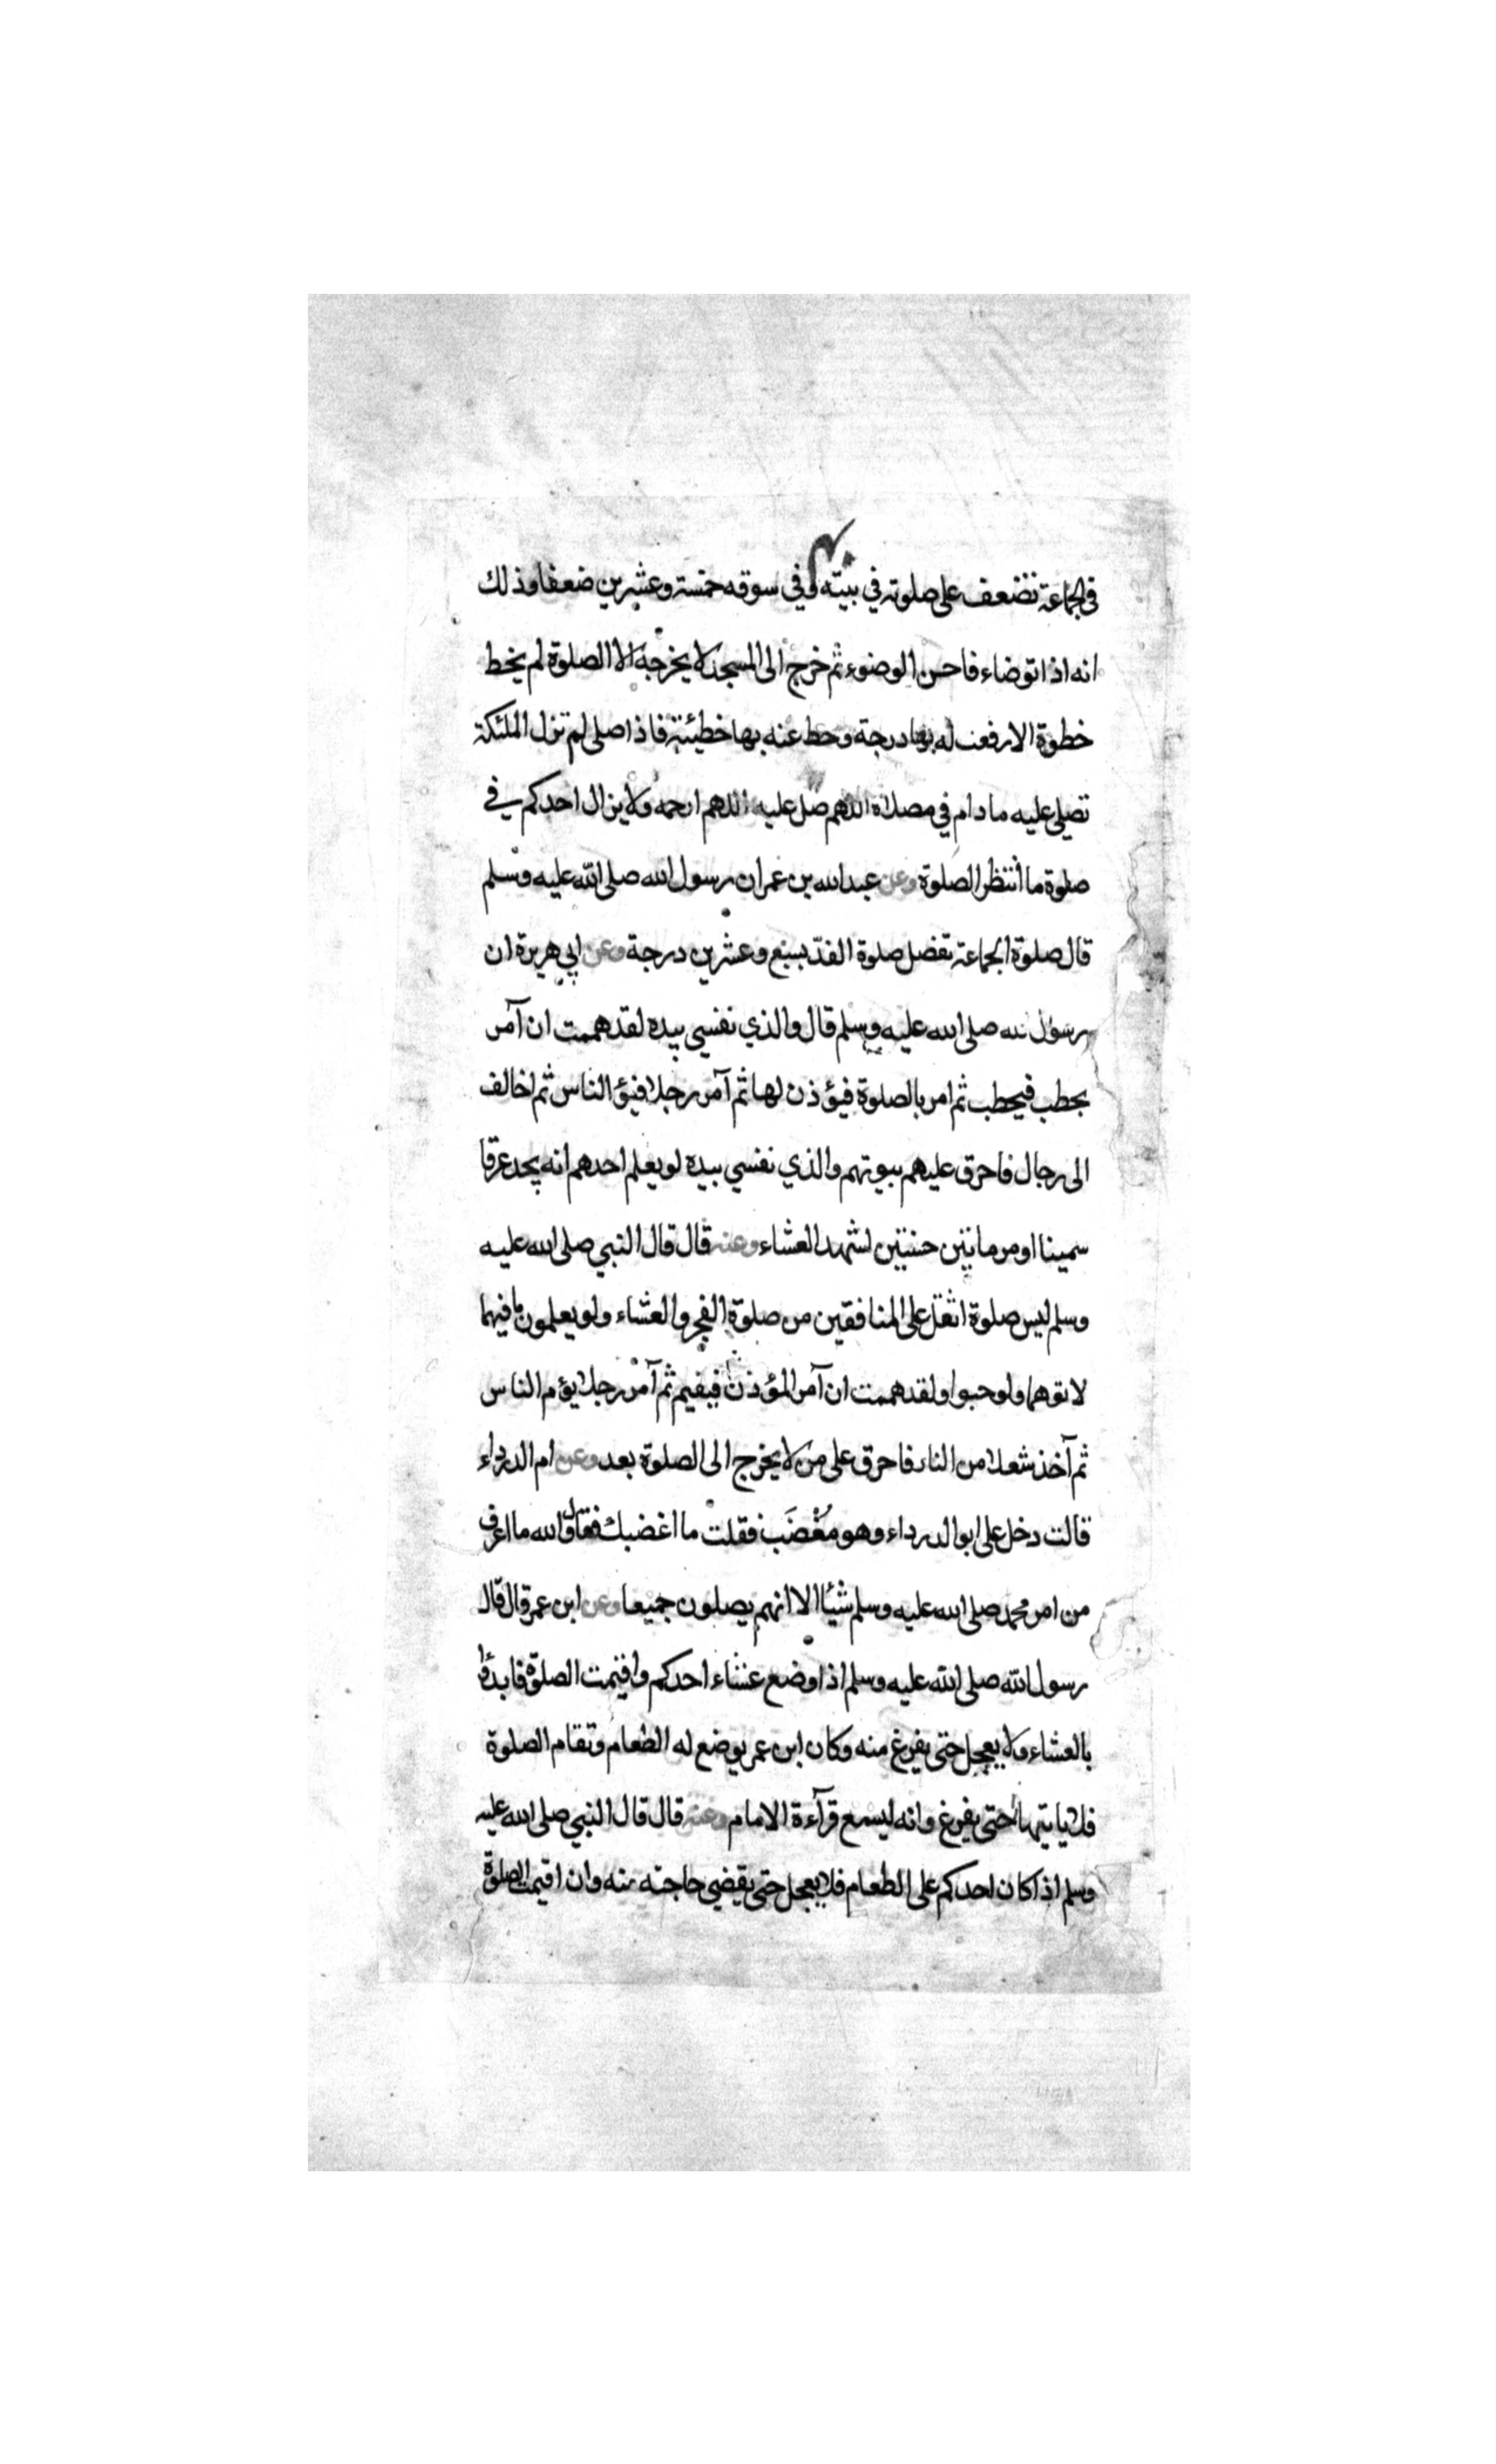 في الجماعة تضعف على صلوته في بيته وفي سوقه خمسة وعشرين ضعفا وذلك
انه اذا توضاء فاحسن الوضوء ثم خرج الى المسجد لا يخرجه الا الصلوة لم يخط
خطوة الا رفعت له بها درجة وحط عنه بها خطيئة فاذا صلى لم تزل الملئكة
تصلي عليه ما دام في مصلاه اللهم صل عليه اللهم ارحمه ولا يزال احدكم في
صلوة ما انتظر الصلوة وعن عبد الله بن عمر ان رسول الله صلى الله عليه وسلم
قال صلوة الجماعة تفضل صلوة الفذ بسبع وعشرين درجة وعن ابي هريرة ان
رسول الله صلى الله عليه وسلم قال والذي نفسي بيده لقد هممت ان آمر
بحطب فيحطب ثم امر بالصلوة فيؤذن لها ثم آمر رجلا فيؤ الناس ثم اخالف
الى رجال فاحرق عليهم بيوتهم والذي نفسي بيده لو يعلم احدهم انه يجد عرقا
سمينا او مرماتين حسنتين لشهد العشاء وعنه قال قال النبي صلى الله عليه
وسلم ليس صلوة اثقل على المنافقين من صلوة الفجر والعشاء ولو يعلمون ما فيهما
لاتوهما ولو حبوا ولقد هممت ان آمر المؤذن فيقيم ثم آمر رجلا يؤم الناس
ثم آخذ شعلا من النار فاحرق على من لا يخرج الى الصلوة بعد وعن ام الدرداء
قالت دخل على ابو الدرداء وهو مُغْضَب فقلت ما اغضبك فقال والله ما اعرف
من امر محمد صلى الله عليه وسلم شيئا الا انهم يصلون جميعا وعن ابن عمر قال قال
رسول الله صلى الله عليه وسلم اذا وضع عشاء احدكم واقيمت الصلوة فابدؤا
بالعشاء ولا يعجل حتى يفرغ منه وكان ابن عمر يوضع له الطعام وتقام الصلوة
فلا ياتيها حتى يفرغ وانه ليسمع قرآءة الامام وعنه قال قال النبي صلى الله عليه
وسلم اذا كان احدكم على الطعام فلا يعجل حتى يقضي حاجته منه وان اقيمت الصلوة